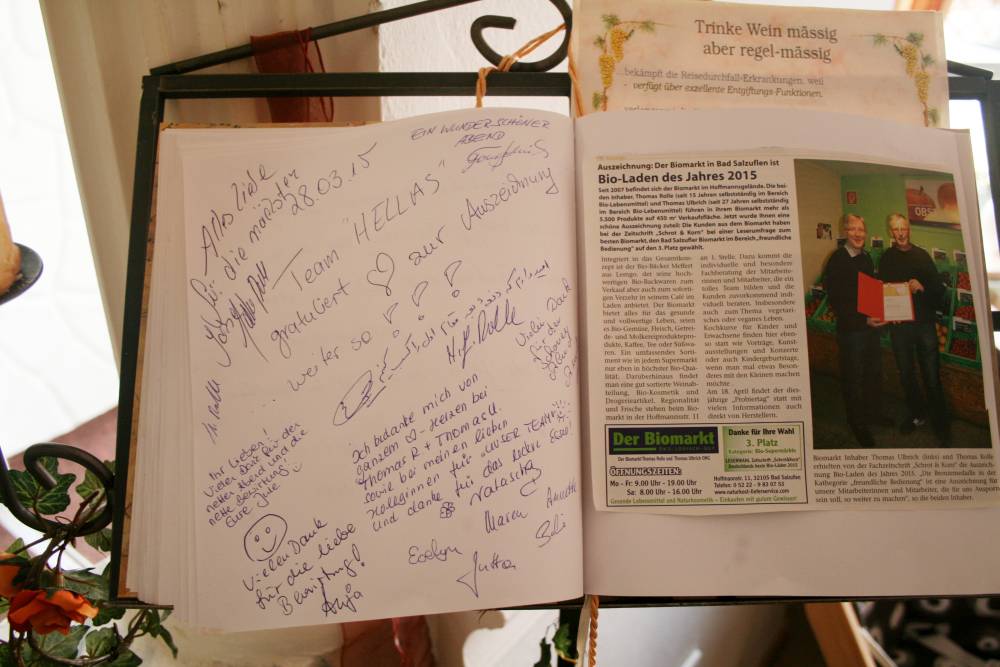 Trinke Wein mässig
aber regel-mässig
...bekämpft die Reisedurchfall-Erkrankungen, weil
verfügt über exzellente Entgiftungs-Funktionen.
EIN WUNDERSCHÖNER
ABEND
Alles Liebe
die nächster
28.03.15
Team "HELLAS"
gratuliert zur Auszeichnung
weiter so!
H.P. Rolle
Vielen Dank
für den
Ich bedanke mich von
ganzem ♡-Herzen bei
Thomas R + Thomas U.
sowie bei meinen lieben
Kolleginnen für "UNSER TEAM"
und danke für das leckere Essen!
Natascha
Ihr Lieben!
Vielen Dank für den
netten Abend und die
nette Bewirtung
Eure Jute
Vielen Dank
für die liebe
Bewirtung!
Anja
Evelyn
Maren
Annette
Jutta
Auszeichnung: Der Biomarkt in Bad Salzuflen ist
Bio-Laden des Jahres 2015
Seit 2007 befindet sich der Biomarkt im Hoffmannsgelände. Die bei-
den Inhaber, Thomas Rolle (seit 15 Jahren selbstständig im Bereich
Bio-Lebensmittel) und Thomas Ulbrich (seit 27 Jahren selbstständig
im Bereich Bio-Lebensmittel) führen in ihrem Biomarkt mehr als
5.500 Produkte auf 450 m² Verkaufsfläche. Jetzt wurde Ihnen eine
schöne Auszeichnung zuteil: Die Kunden aus dem Biomarkt haben
bei der Zeitschrift „Schrot & Korn" bei einer Leserumfrage zum
besten Biomarkt, den Bad Salzufler Biomarkt im Bereich „freundliche
Bedienung" auf den 3. Platz gewählt.
Integriert in das Gesamtkon-
zept ist der Bio-Bäcker Meffert
aus Lemgo, der seine hoch-
wertigen Bio-Backwaren zum
Verkauf aber auch zum soforti-
gen Verzehr in seinem Café im
Laden anbietet. Der Biomarkt
bietet alles für das gesunde
und vollwertige Leben, seien
es Bio-Gemüse, Fleisch, Getrei-
de- und Molkereinaturprodukte
produkte, Kaffee, Tee oder Süßwa-
ren. Ein umfassendes Sorti-
ment wie in jedem Supermarkt
nur eben in höchster Bio-Qua-
lität. Darüberhinaus findet
man eine gut sortierte Weinab-
teilung, Bio-Kosmetik und
Drogerieartikel. Regionalität
und Frische stehen beim Bio-
markt in der Hoffmannstr. 11
an 1. Stelle. Dazu kommt die
individuelle und besondere
Fachberatung der Mitarbeite-
rinnen und Mitarbeiter, die ein
tolles Team bilden und die
Kunden zuvorkommend indi-
viduell beraten. Insbesondere
auch zum Thema vegetari-
sches oder veganes Leben.
Kochkurse für Kinder und
Erwachsene finden hier eben-
so statt wie Vorträge, Kunst-
ausstellungen und Konzerte
oder auch Kindergeburtstage,
wenn man mal etwas Beson-
deres mit den Kleinen machen
möchte.
Am 18. April findet der dies-
jährige „Probiertag" statt mit
vielen Informationen auch
direkt von Herstellern.
OBST
Der Biomarkt
Der Biomarkt Thomas Rolle und Thomas Ulbrich OHG
ÖFFNUNGSZEITEN:
Mo - Fr. 9.00 Uhr - 19.00 Uhr
Sa: 8.00 Uhr - 16.00 Uhr
Danke für Ihre Wahl
3. Platz
Kategorie: Bio-Supermärkte
Hoffmannstr. 11, 32105 Bad Salzuflen
Telefon: 0 52 22 - 9 83 07 53
www.naturkost-lieferservice.com
Gesunde Lebensmittel und Naturkosmetik - Einkaufen mit gutem Gewissen!
Biomarkt Inhaber Thomas Ulbrich (links) und Thomas Rolle
erhielten von der Fachzeitschrift „Schrot & Korn" die Auszeich-
nung Bio-Laden des Jahres 2015. „Die Bronzemedaille in der
Kathegorie „freundliche Bedienung" ist eine Auszeichnung für
unsere Mitarbeiterinnen und Mitarbeiter, die für uns Ansporn
sein soll, so weiter zu machen", so die beiden Inhaber.